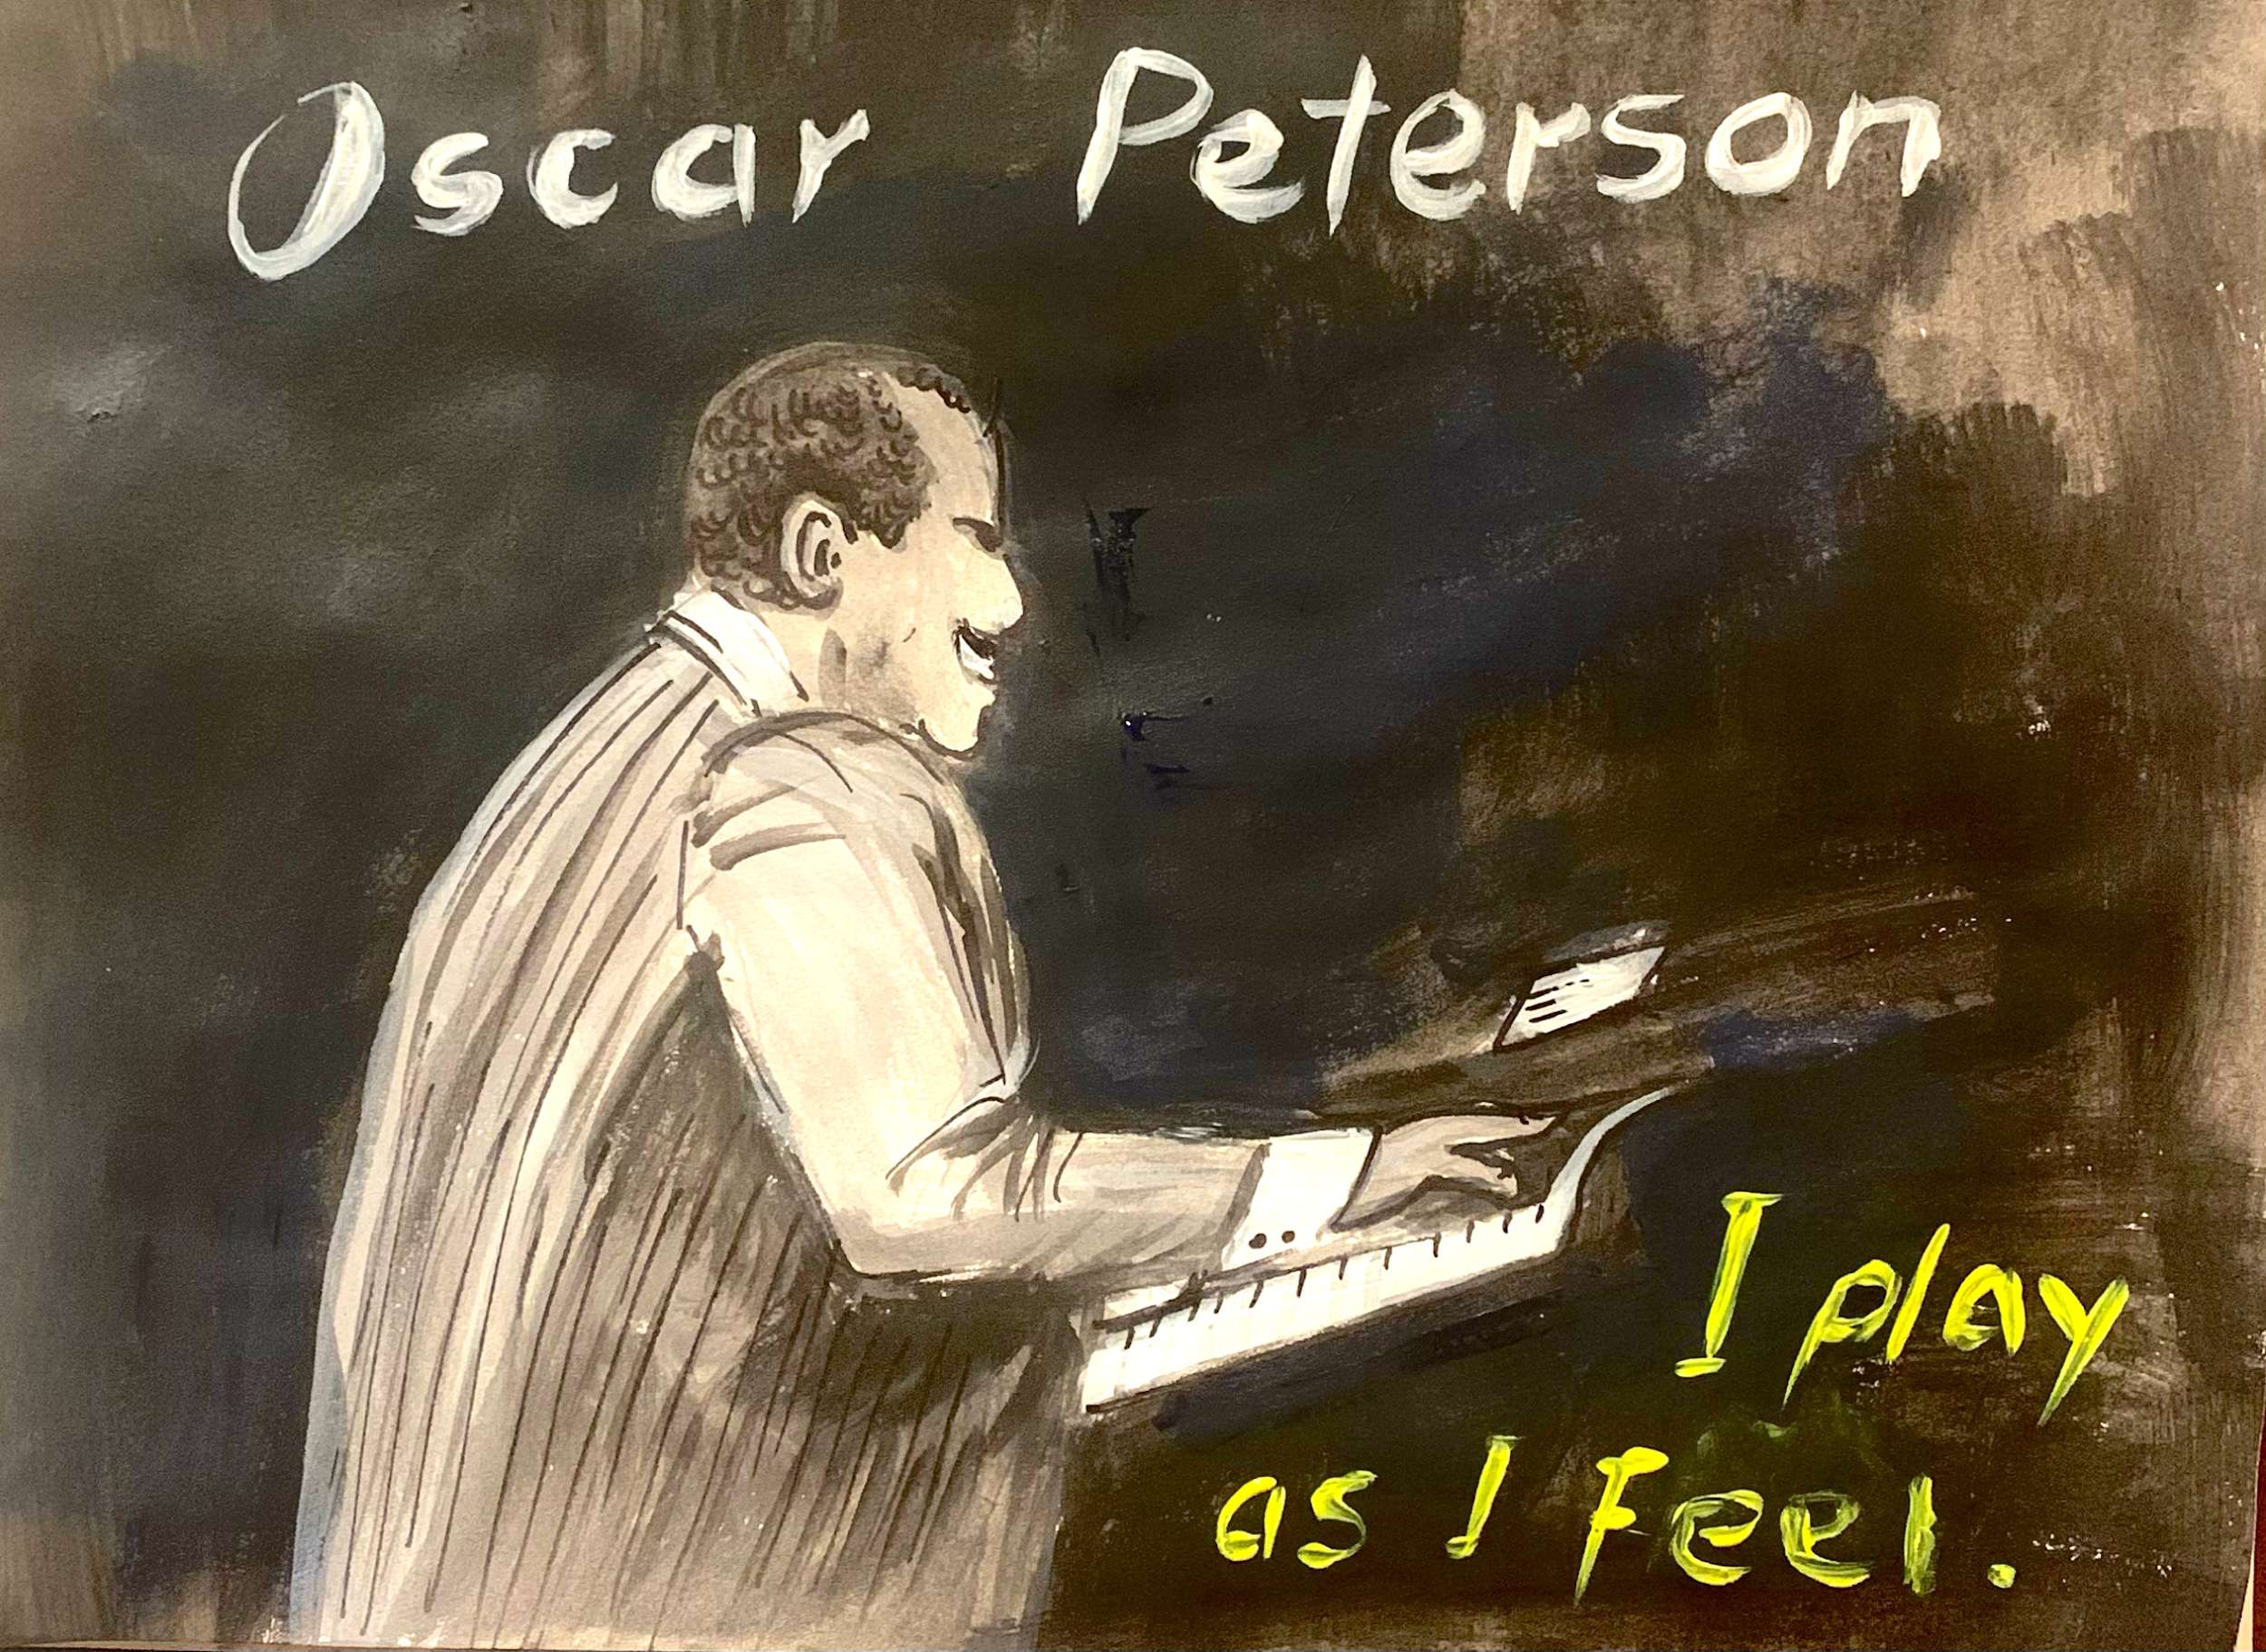 Oscar Peterson
I play
as I Feel.